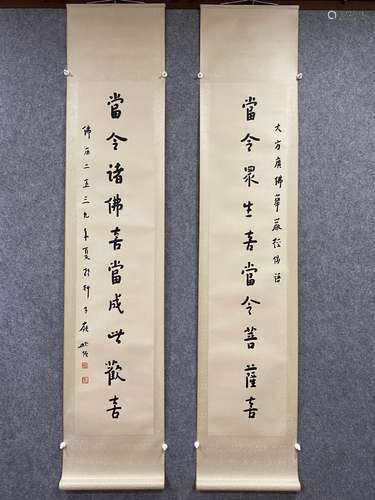 大方廣佛華嚴經偈語
當令眾生喜當令菩薩喜
當令諸佛喜當成此歡喜
佛曆二五三九年夏於